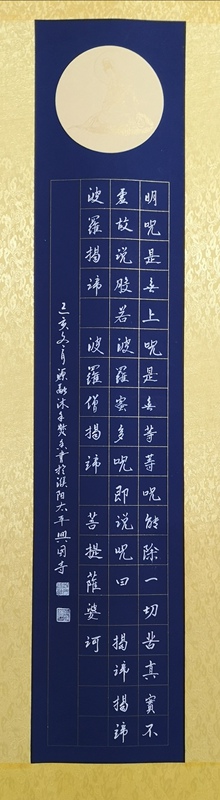 明咒是无上咒是無等等咒能除一切苦真實不
虛故說般若波羅蜜多咒即說咒曰 揭諦揭諦
波羅揭諦 波羅僧揭諦 菩提薩婆訶
己亥冬月源融沐手焚香書於濮陽太平興國寺